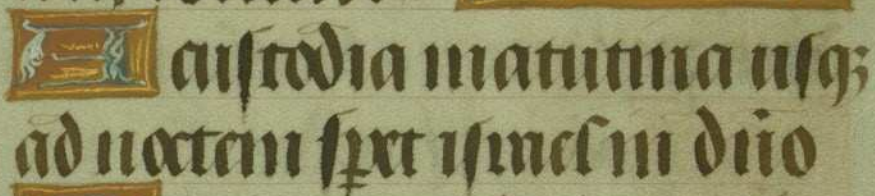 A cuſtodia matutina uſqꝫ
ad noctem ſꝑet iſrael in dño